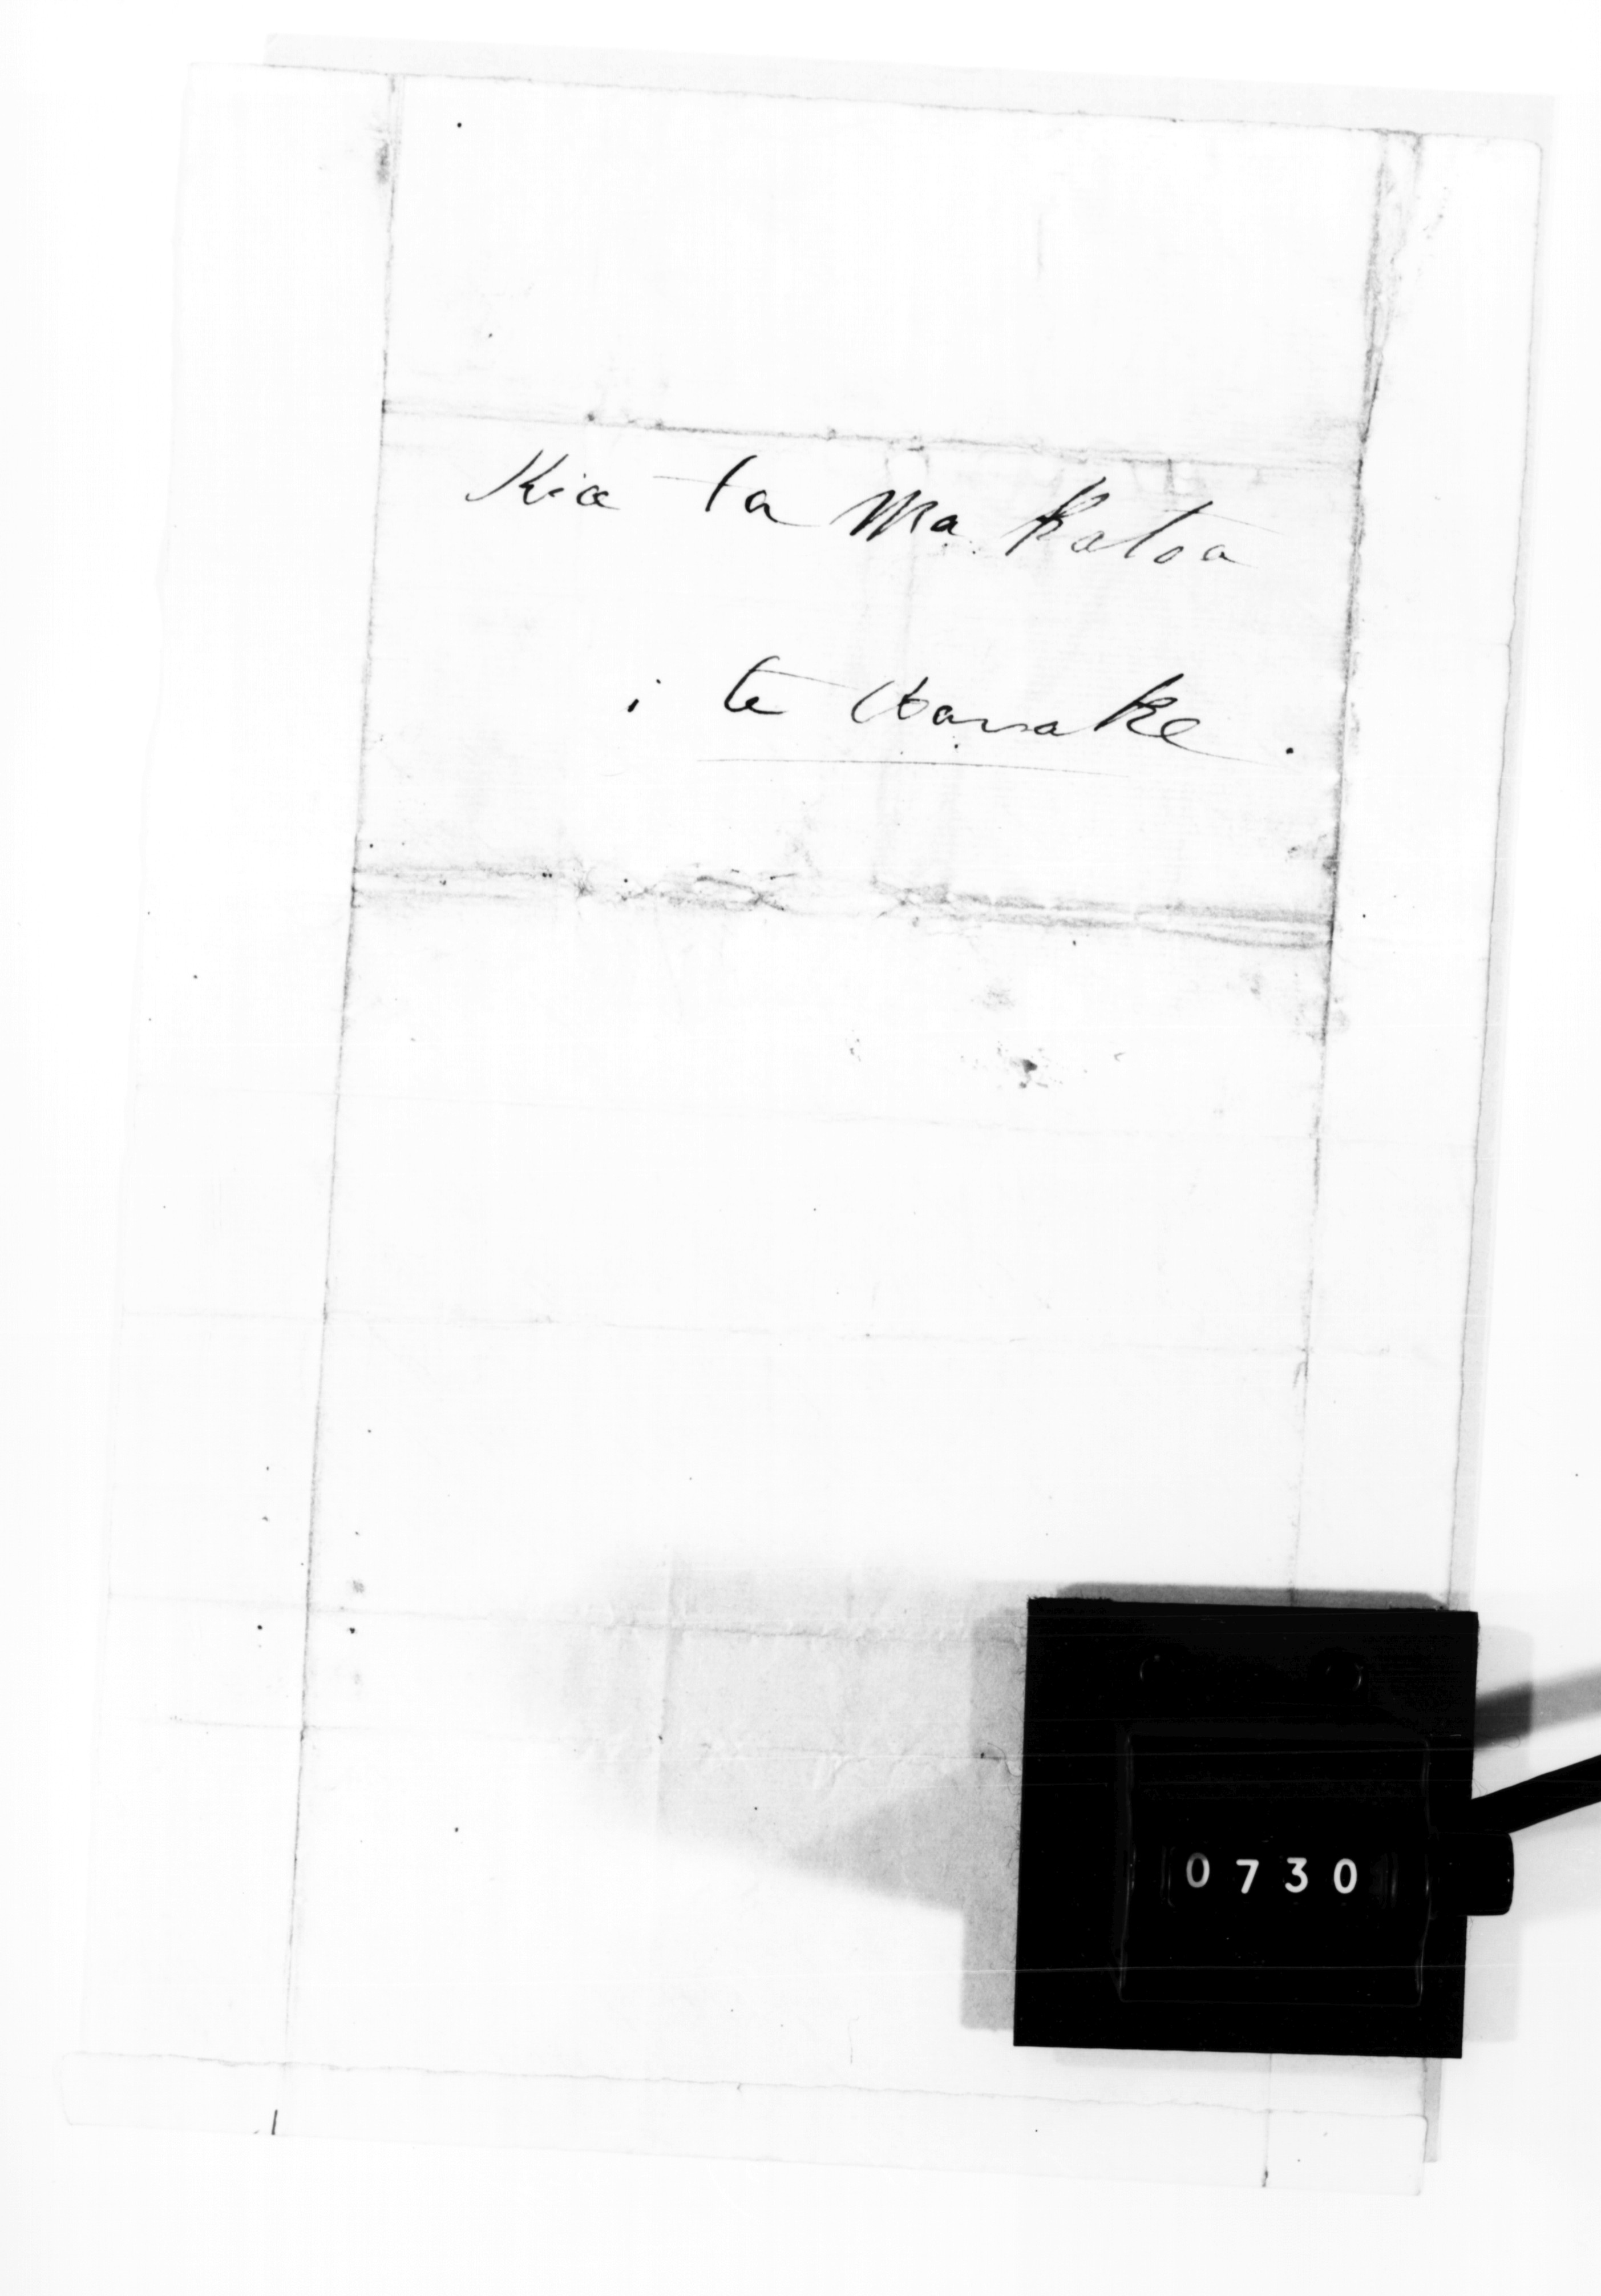 Kia ta Ma Katoa
i te Wanake.
0730